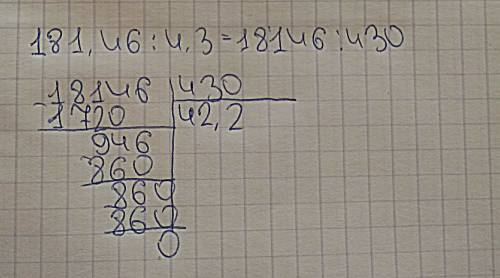 181,46:4,3=18146:430
18146 430
1720 42,2
946
860
860
860
0